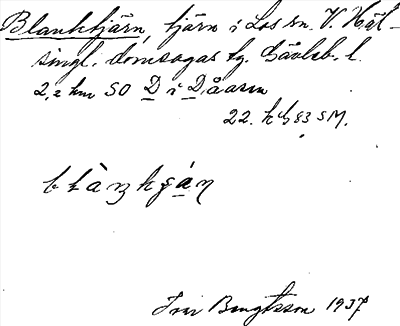 Blanktjärn, tjärn i Los sn. V. Häl-
singl. domsagas tg. Gävleb. l.
2,2 km SO D i Dåasen
22. h G 83 SM.
Ivar Bengtsson 1937